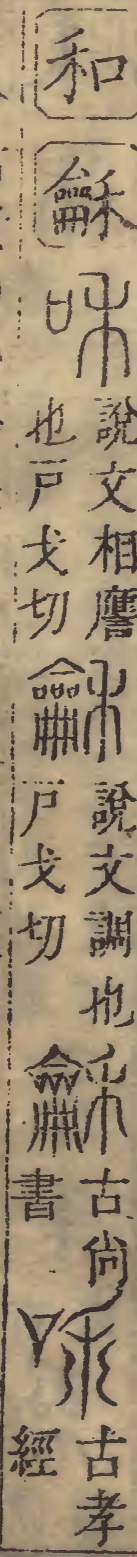 和 龢 咊 說文相譍也戶戈切 龢 說文調也戶戈切 龢 古尚書 咊 古孝經